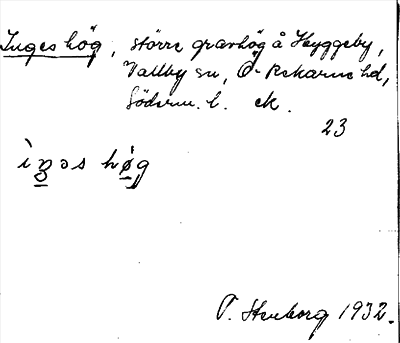 Inges hög, större gravhög å Hyggeby,
Vallby sn, Ö. Rekarne hd,
Söderm. l. ek.
23
ìŋəs hø̀g
P. Stenborg 1932.